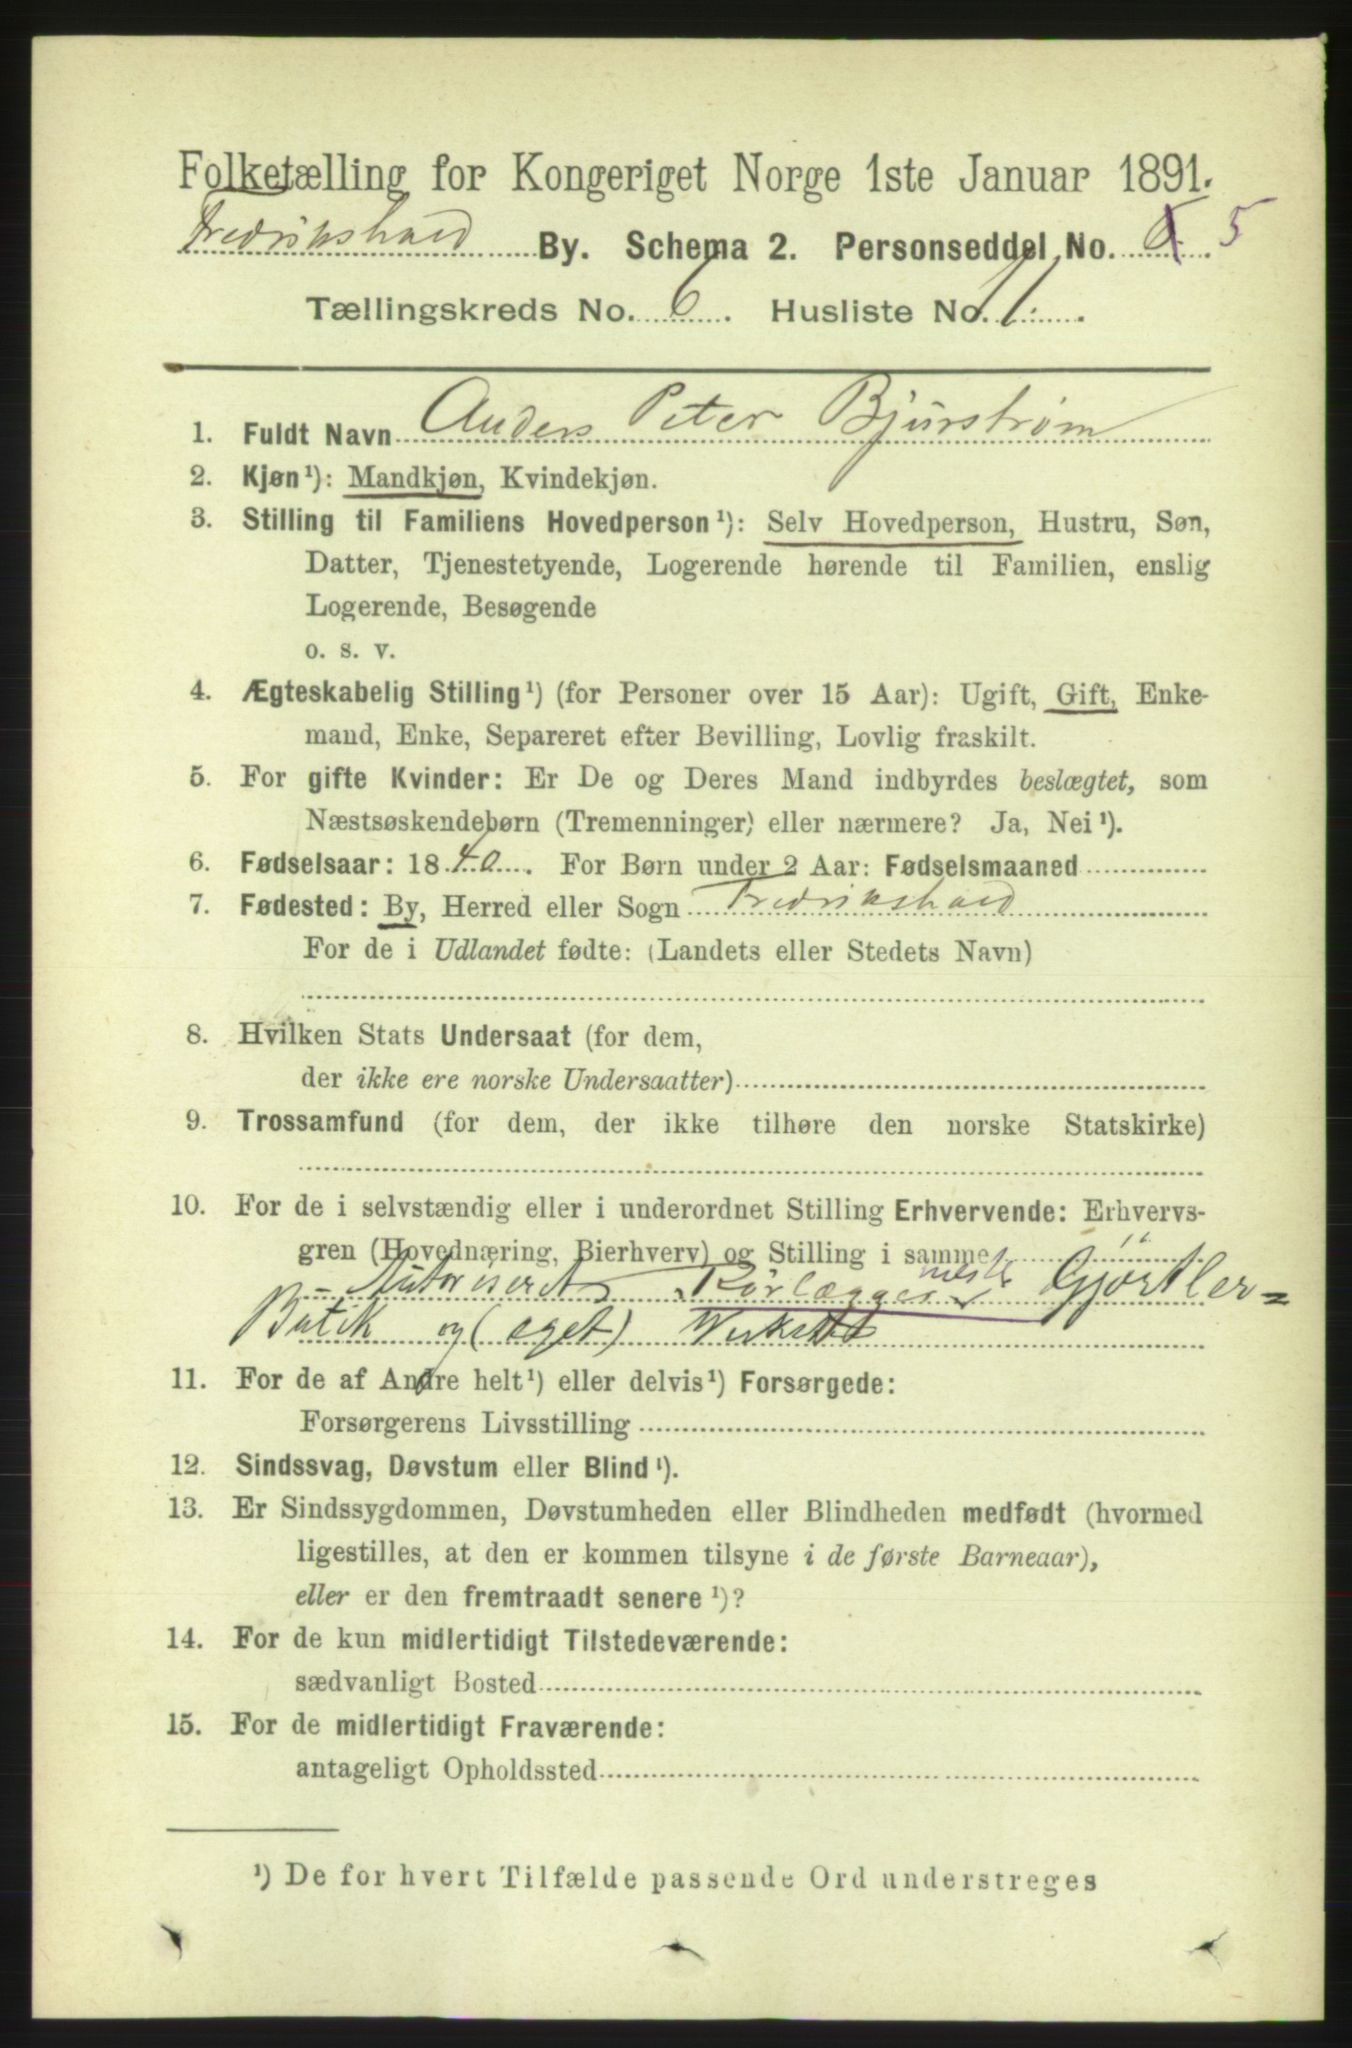 Folketælling for Kongeriget Norge 1ste Januar 1891.
Fredrikshald By. Schema 2. Personseddel No. 5
Tællingskreds No. 6. Husliste No. 1.
1. Fuldt Navn Anders Peter Bjurstrøm
2. Kjøn¹): Mandkjøn, Kvindekjøn.
3. Stilling til Familiens Hovedperson¹): Selv Hovedperson, Hustru, Søn,
Datter, Tjenestetyende, Logerende hørende til Familien, enslig
Logerende, Besøgende
o. s. v.
4. Ægteskabelig Stilling¹) (for Personer over 15 Aar): Ugift, Gift, Enke-
mand, Enke, Separeret efter Bevilling, Lovlig fraskilt.
5. For gifte Kvinder: Er De og Deres Mand indbyrdes beslægtet, som
Næstsøskendebørn (Tremenninger) eller nærmere? Ja, Nei¹).
6. Fødselsaar: 1840. For Børn under 2 Aar: Fødselsmaaned
7. Fødested: By, Herred eller Sogn Fredrikshald
For de i Udlandet fødte: (Landets eller Stedets Navn)
8. Hvilken Stats Undersaat (for dem,
der ikke ere norske Undersaatter)
9. Trossamfund (for dem, der ikke tilhøre den norske Statskirke)
10. For de i selvstændig eller i underordnet Stilling Erhvervende: Erhvervs-
gren (Hovednæring, Bierhverv) og Stilling i samme
Autoriseret Rørlæggermester Gjørtler=
Butik og (eget) Verksted
11. For de af Andre helt¹) eller delvis¹) Forsørgede:
Forsørgerens Livsstilling
12. Sindssvag, Døvstum eller Blind¹).
13. Er Sindssygdommen, Døvstumheden eller Blindheden medfødt (hvormed
ligestilles, at den er kommen tilsyne i de første Barneaar),
eller er den fremtraadt senere¹)?
14. For de kun midlertidigt Tilstedeværende:
sædvanligt Bosted
15. For de midlertidigt Fraværende:
antageligt Opholdssted
¹) De for hvert Tilfælde passende Ord understreges